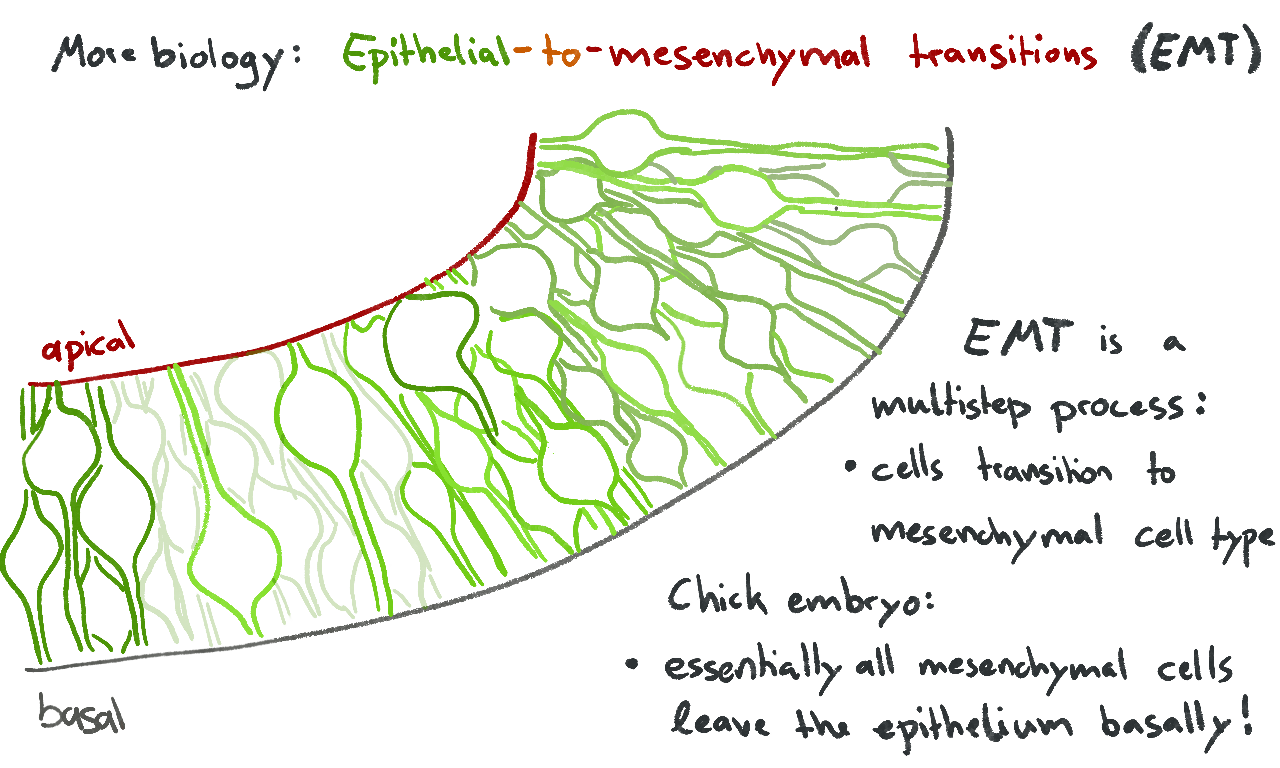 More biology: Epithelial-to-mesenchymal transitions (EMT)
apical
EMT is a
multistep process:
• cells transition to
mesenchymal cell type
Chick embryo:
• essentially all mesenchymal cells
leave the epithelium basally!
basal